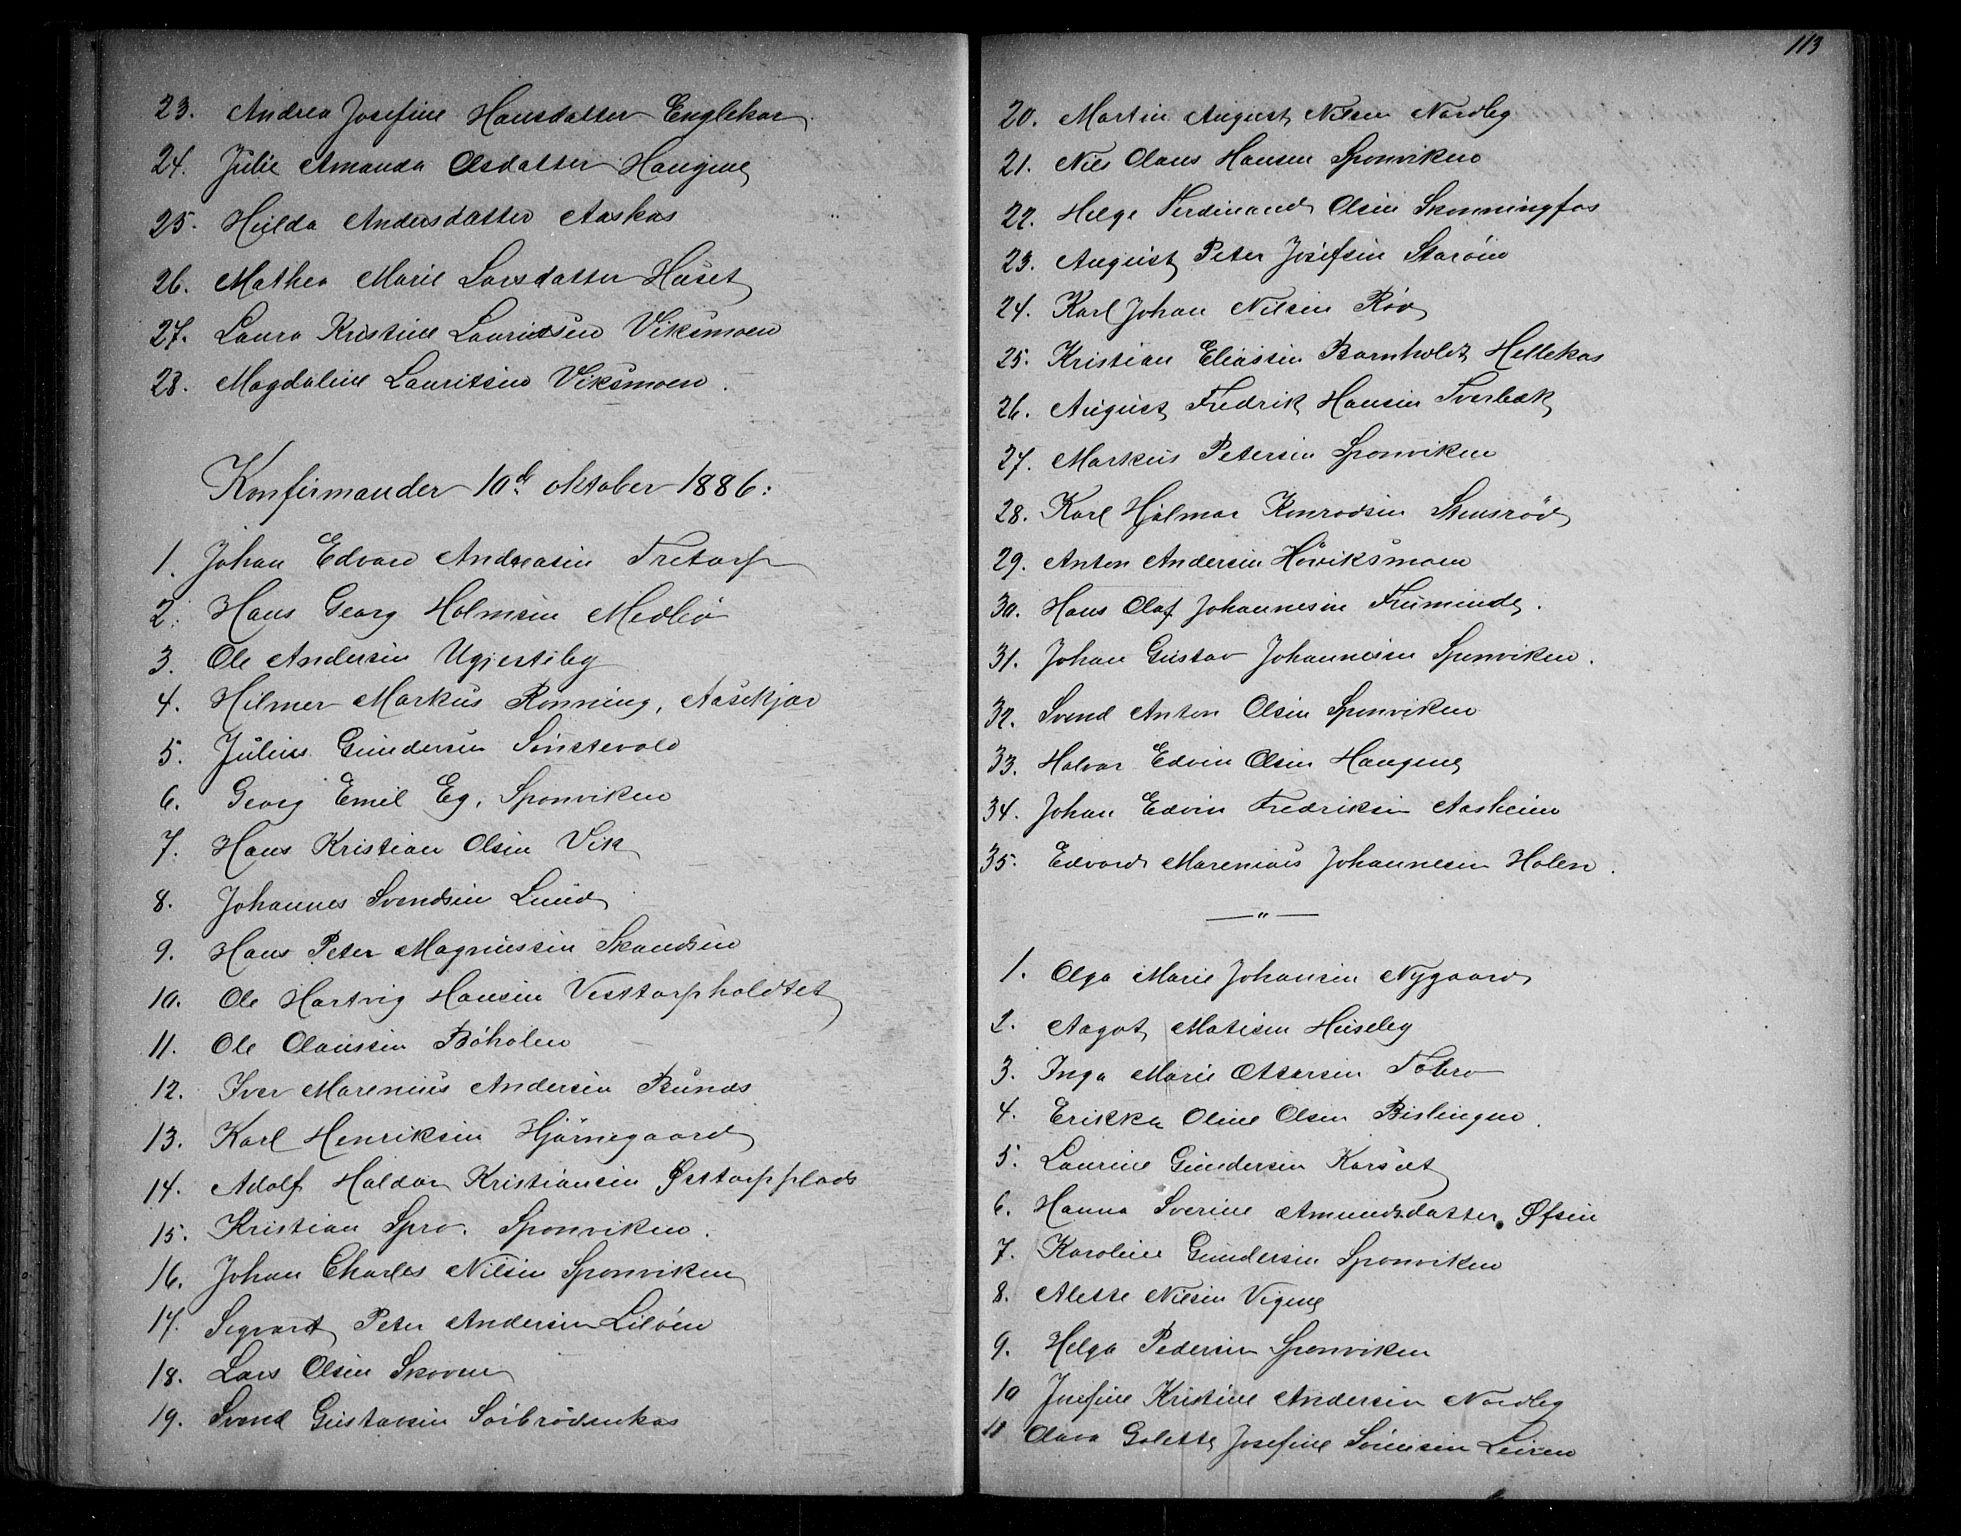 23. Andrea Josefine Hansdatter Englekor.
24. Julie Amanda Olsdatter Haugene
25. Hulda Andersdatter Aaskas
26. Mathea Marie Larsdatter Huset
27. Laura Kristine Lauridsen Viksmoen
28. Magdaline Lauritsen Viksmoen.
Konfirmander 10de oktober 1886:
1. Johan Edvard Andreasen Tretorp
2. Hans Georg Holmsen Medbø
3. Ole Andersen Ugjestiby
4. Hilmer Markus Rønning, Aasekjær
5. Julius Gundersen Sønstevold
6. Georg Emil Eg, Sponviken
7. Hans Kristian Olsen Vik
8. Johannes Svendsen Lund
9. Hans Peter Magnussen Skandsen
10. Ole Hartvig Hansen Vesttorpholdtet
11. Ole Olaussen Bøholen
12. Iver Marenius Andersen Bunds
13. Karl Henriksen Hjørnegaard
14. Adolf Haldor Kristiansen Østtorpplads
15. Kristian Spro. Sponviken.
16. Johan Charles Nilsen Sponviken
17. Sigvart Peter Andersen Liløen
18. Lars Olsen Skoven
19. Svend Gustavsen Sørbrødenkas
113
20. Martin August Nilsen Nordby
21. Nils Olaus Hansen Sponviken
22. Helge Ferdinand Olsen Skonningfos
23. August Peter Josefsen Storøen
24. Karl Johan Nilsen Rød
25. Kristian Eliassen Barnholdt Hellekas
26. August Fredrik Hansen Tverbæk
27. Markus Petersen Sponviken
28. Karl Hjalmar Konradsen Stensrød
29. Anton Andersen Høviksmoen
30. Hans Olaf Johannesen
31. Johan Gustav Johannesen Sponviken.
32. Svend Anton Olsen Sponviken
33. Halvor Edvin Olsen Haugene
34. Johan Edvin Fredriksen Aasheim
35. Edvard Marenius Johannesen Holen.
— " —
1. Olga Marie Johansen Nygaard
2. Aagot Matisen Huseby
3. Inga Marie Ottersen Tobro
4. Erikka Oline Olsen Bislingen.
5. Laurine Gundersen Korsæt
6. Hanna Sverine Amundsdatter Øfsen
7. Karoline Gundersen Sponviken
8. Alette Nilsen Vigene
9. Helga Pedersen Sponviken
10 Josefine Kristine Andersen Nordby
11 Olava Golette Josefine Sørensen Leiren